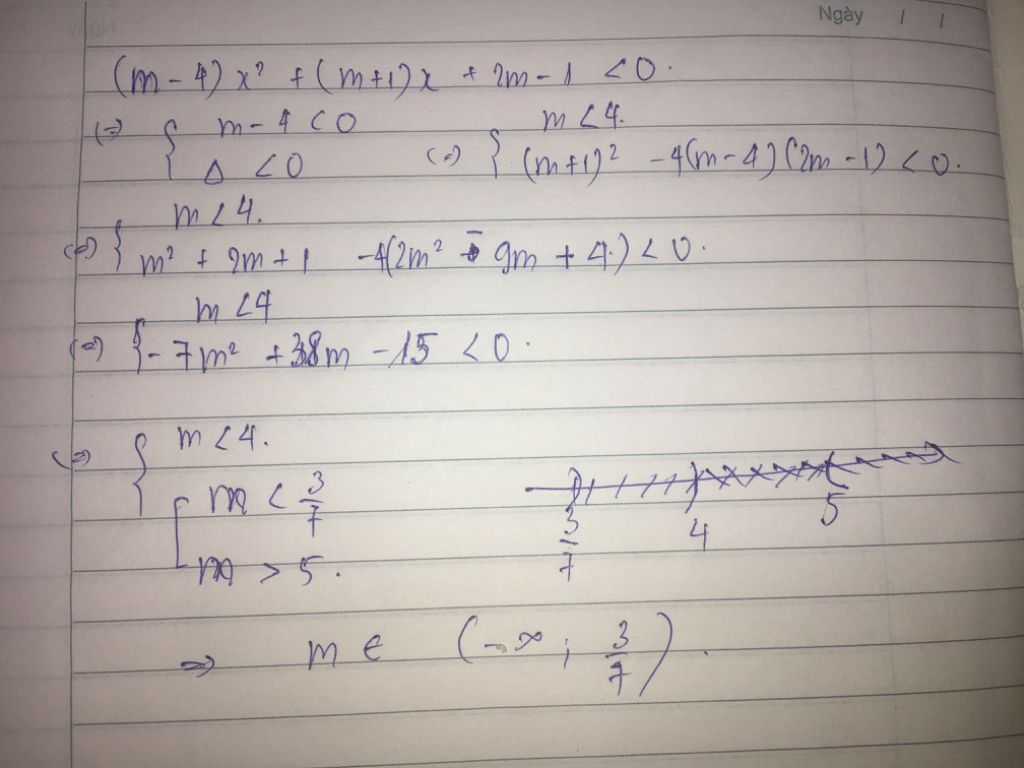 Ngày / /
(m - 4) x² + (m+1)x + 2m - 1 < 0.
(=) { m - 4 < 0 (=) { m < 4.
Δ < 0 (m+1)² - 4(m - 4)(2m - 1) < 0.
(=) { m < 4.
m² + 2m + 1 - 4(2m² - 9m + 4) < 0.
(=) { m < 4
- 7m² + 38m - 15 < 0.
(=) { m < 4.
[ m < 3/7
m > 5.
3/7 4 5
=> m ∈ (-∞ ; 3/7).